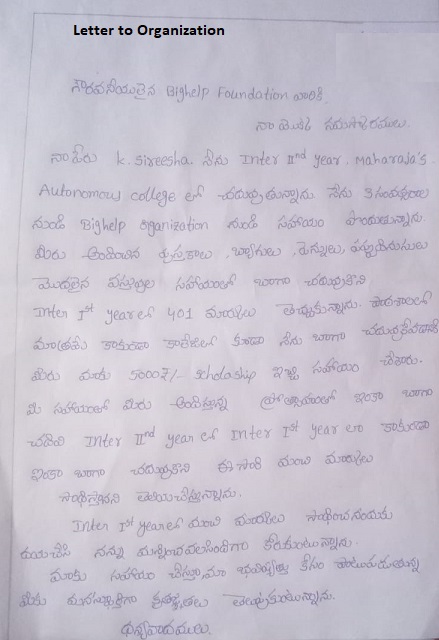 Letter to Organization
గౌరవనీయులైన Bighelp Foundation వారికి
నా యొక్క నమస్కారములు.
నా పేరు k. sireesha. నేను Inter IInd year, Maharaja's
Autonomous college లో చదువుతున్నాను. నేను 3 సంవత్సరాల
నుండి Bighelp organization నుండి సహాయం పొందుతున్నాను.
మీరు అందించిన పుస్తకాలు, బ్యాగులు, పెన్నులు,
మొదలైన వస్తువుల సహాయంతో బాగా చదువుకొని
Inter Ist year లో 401 మార్కులు తెచ్చుకున్నాను. పాఠశాలలో
మాత్రమే కాకుండా కాలేజిలో కూడా నేను బాగా చదువుకోవడానికి
మీరు మాకు 5000₹/- scholaship ఇచ్చి సహాయం చేశారు.
మీ సహాయంతో మీరు అందిస్తున్న ప్రోత్సాహంతో ఇంకా బాగా
చదివి Inter IInd year లో Inter Ist year లా కాకుండా
ఇంకా బాగా చదువుకొని ఈ సారి మంచి మార్కులు
సాధిస్తానని తెలియచేస్తున్నాను.
Inter Ist year లో మంచి మార్కులు సాధించనందుకు
దయచేసి నన్ను మన్నించవలసిందిగా కోరుకుంటున్నాను.
మాకు సహాయం చేస్తూ మా భవిష్యత్తు కోసం పాటుపడుతున్న
మీకు మనస్ఫూర్తిగా కృతజ్ఞతలు తెలుపుకుంటున్నాను.
ధన్యవాదములు.